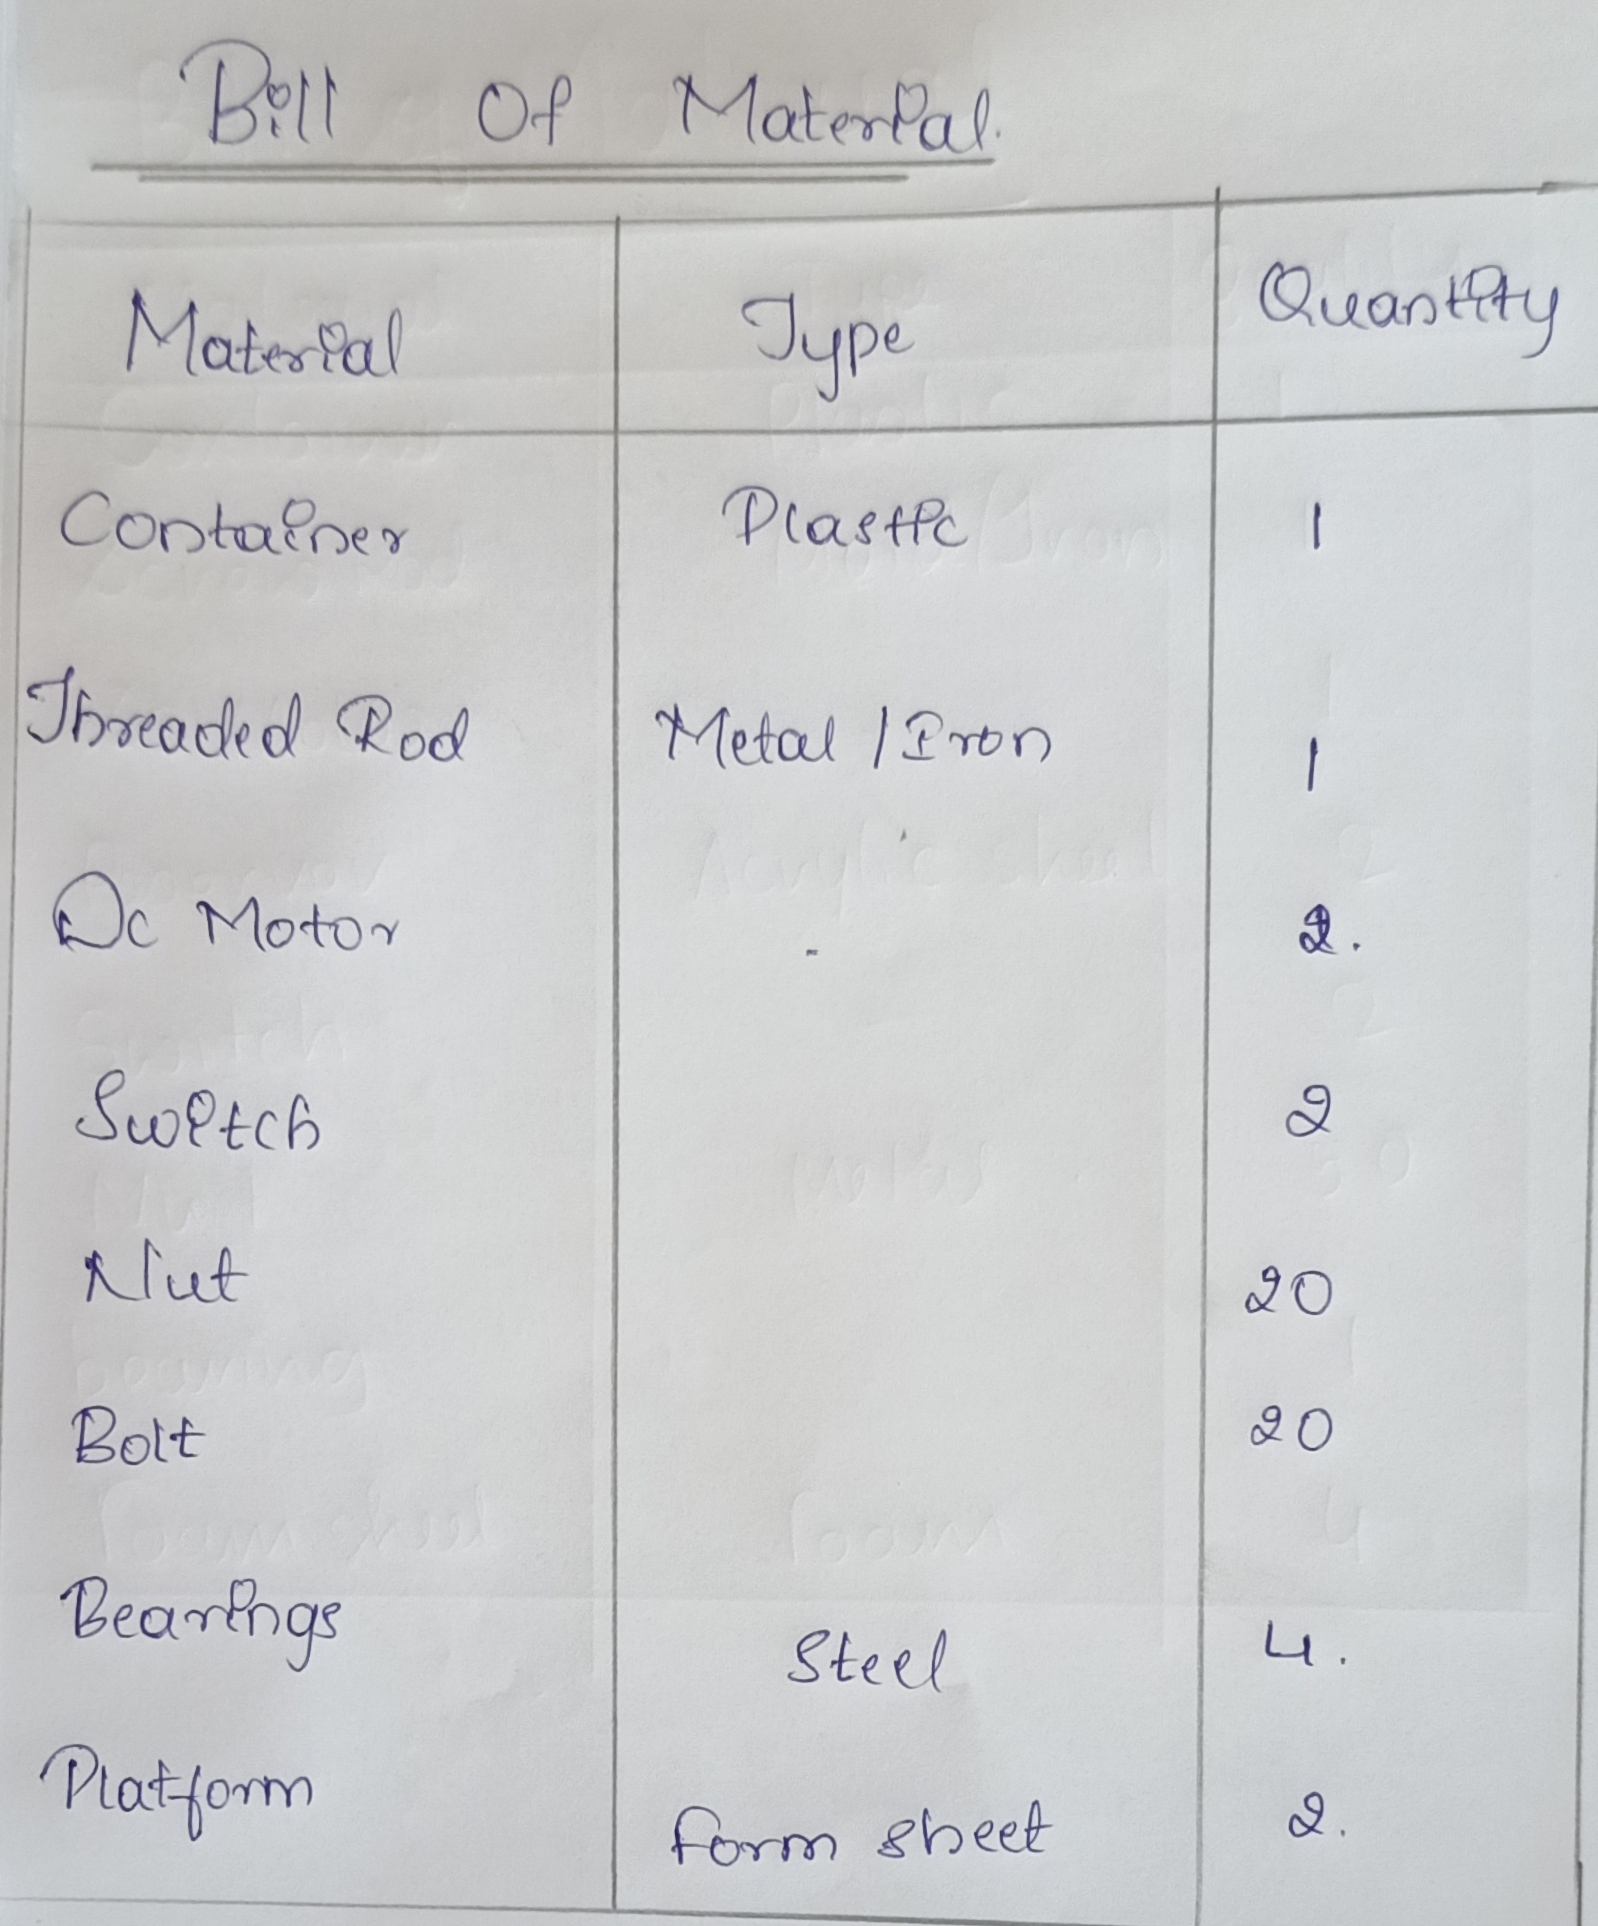 Bill Of Material.
Material Type Quantity
Container Plastic 1
Threaded Rod Metal / Iron 1
Dc Motor - 2.
Switch 2
Nut 20
Bolt 20
Bearings Steel 4.
Platform form sheet 2.